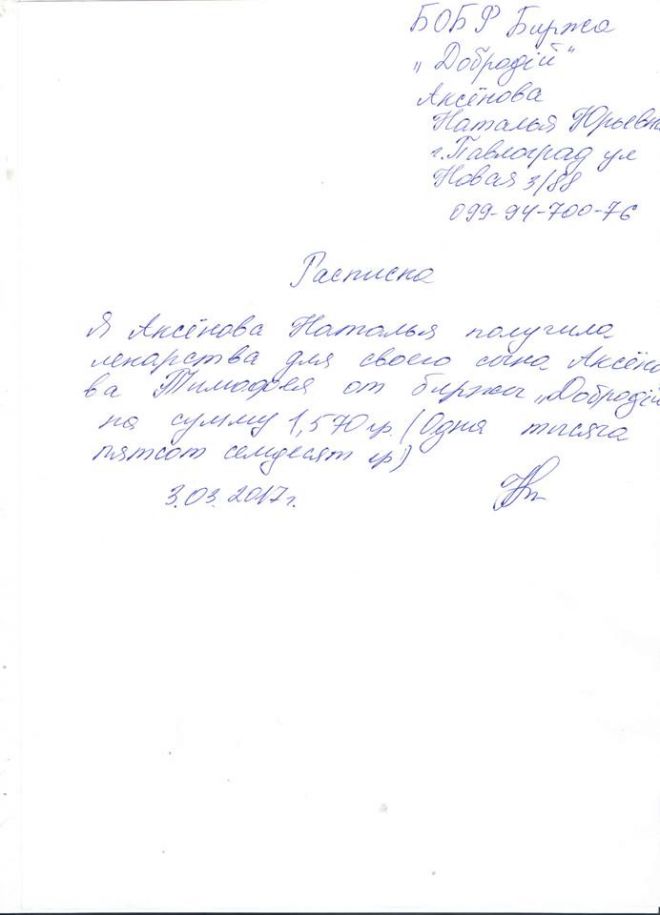 БОБФ Биржа
„Добродій"
Аксёнова
Наталья Юрьевн
г.Павлоград ул
Новая 3/88
099-94-700-76
Расписка
Я Аксёнова Наталья получила
лекарства для своего сына Аксёно
ва Тимофея от биржы „Добродій
на сумму 1,570гр. (Одна тисяча
пятсот семдесят гр)
3.03.2017г.